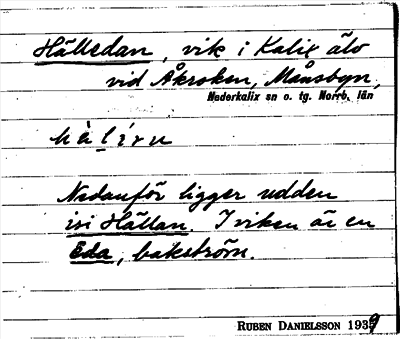 Hälledan, vik i Kalix älv
vid Åkroken, Månsbyn,
Nederkalix sn o. tg. Norrb. län
Nedanför ligger udden
isi Hällan. I viken är en
Eda, bakström.
RUBEN DANIELSSON 1939